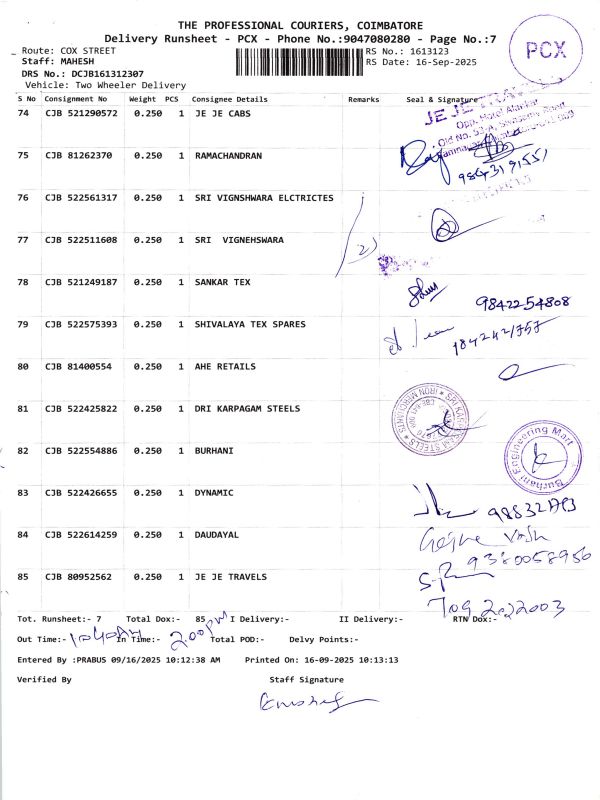 THE PROFESSIONAL COURIERS, COIMBATORE
Delivery Runsheet - PCX - Phone No.:9047080280 - Page No.:7
PCX
Route: COX STREET
RS No.: 1613123
Staff: MAHESH
RS Date: 16-Sep-2025
DRS No.: DCJB161312307
Vehicle: Two Wheeler Delivery
S No Consignment No Weight PCS Consignee Details Remarks Seal & Signature
74 CJB 521290572 0.250 1 JE JE CABS
75 CJB 81262370 0.250 1 RAMACHANDRAN
76 CJB 522561317 0.250 1 SRI VIGNSHWARA ELCTRICTES
77 CJB 522511608 0.250 1 SRI VIGNEHSWARA
78 CJB 521249187 0.250 1 SANKAR TEX
9842254808
79 CJB 522575393 0.250 1 SHIVALAYA TEX SPARES
80 CJB 81400554 0.250 1 AHE RETAILS
81 CJB 522425822 0.250 1 DRI KARPAGAM STEELS
82 CJB 522554886 0.250 1 BURHANI
Burhani Engineering Mart
83 CJB 522426655 0.250 1 DYNAMIC
84 CJB 522614259 0.250 1 DAUDAYAL
9380058956
85 CJB 80952562 0.250 1 JE JE TRAVELS
Tot. Runsheet:- 7 Total Dox:- 85 I Delivery:- II Delivery:- RTN Dox:-
Out Time:- 10:40AM In Time:- 2.00pm Total POD:- Delvy Points:-
Entered By :PRABUS 09/16/2025 10:12:38 AM Printed On: 16-09-2025 10:13:13
Verified By Staff Signature